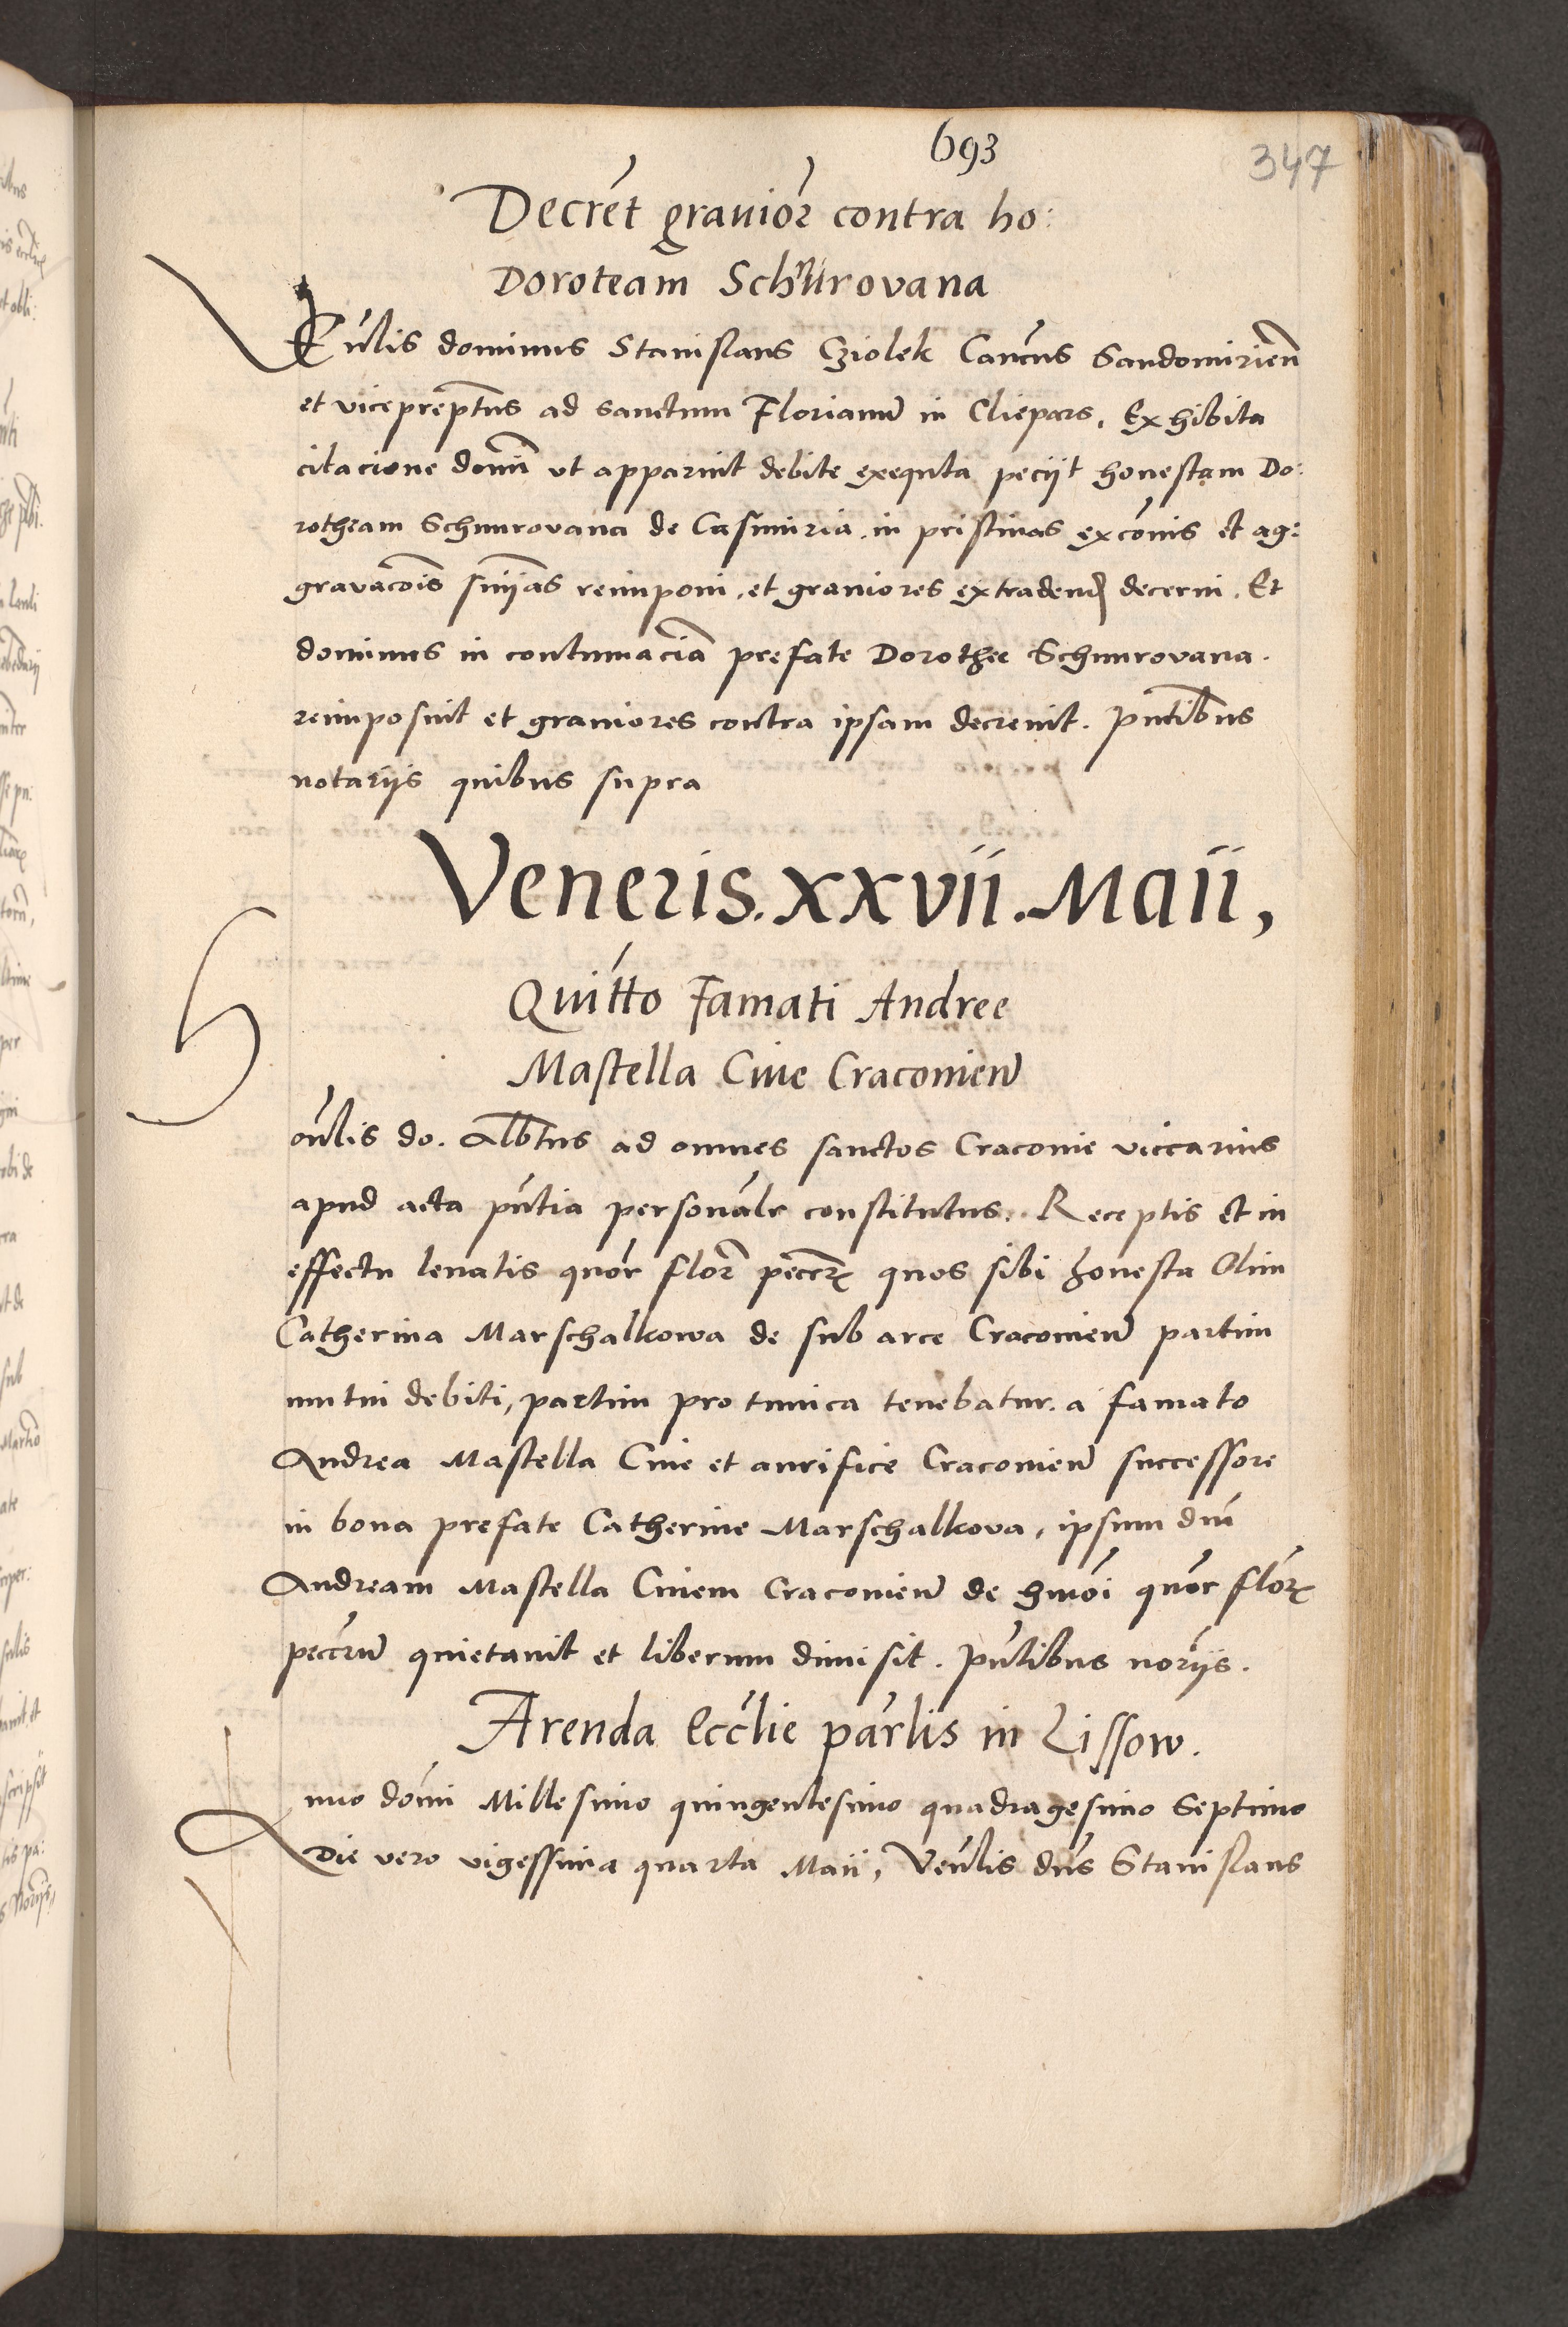 693
347
Decret gravior contra ho:
Doroteam Schnurovana
Venlis dominus Stanislaus Cziolek Cancus Sandomirien
et vicepreptus ad sanctum Florianum in Cliepars, Exhibita
citacione domini ut apparuit debite exequta peciit honestam Do:
rotheam Schnurovana de Casimiria, in pristinas exconis et ag:
gravacois sniias reimponi, et graviores extradend decerni, Et
dominus in contumaciam prefate Dorothee Schnurovana
reimposuit et graviores contra ipsam decrevit. Pntibus
notariis quibus supra
Veneris. xxvii. Maii,
Quitto Famati Andree
Mastella Cive Cracovien
Honlis do. Albtus ad omnes sanctos Cracovie viccarius
apud acta pntia personalr constitutus. Receptis et in
effectu levatis quor flor peccr quos sibi honesta Olim
Catherina Marschalkowa de sub arce Cracovien partim
mutui debiti, partim pro tunica tenebatur. a famato
Andrea Mastella Cive et aurifice Cracovien successore
in bona prefate Catherine Marschalkova, ipsum dnm
Andream Mastella Civem Cracovien de hmoi quor flor
peccrum quietavit et liberum dimisit. Pntibus noriis.
Arenda Ecclie parlis in Lissow.
Anno domi Millesimo quingentesimo quadragesimo Septimo
Die vero vigessima quarta Maii, Venlis dns Stanislaus